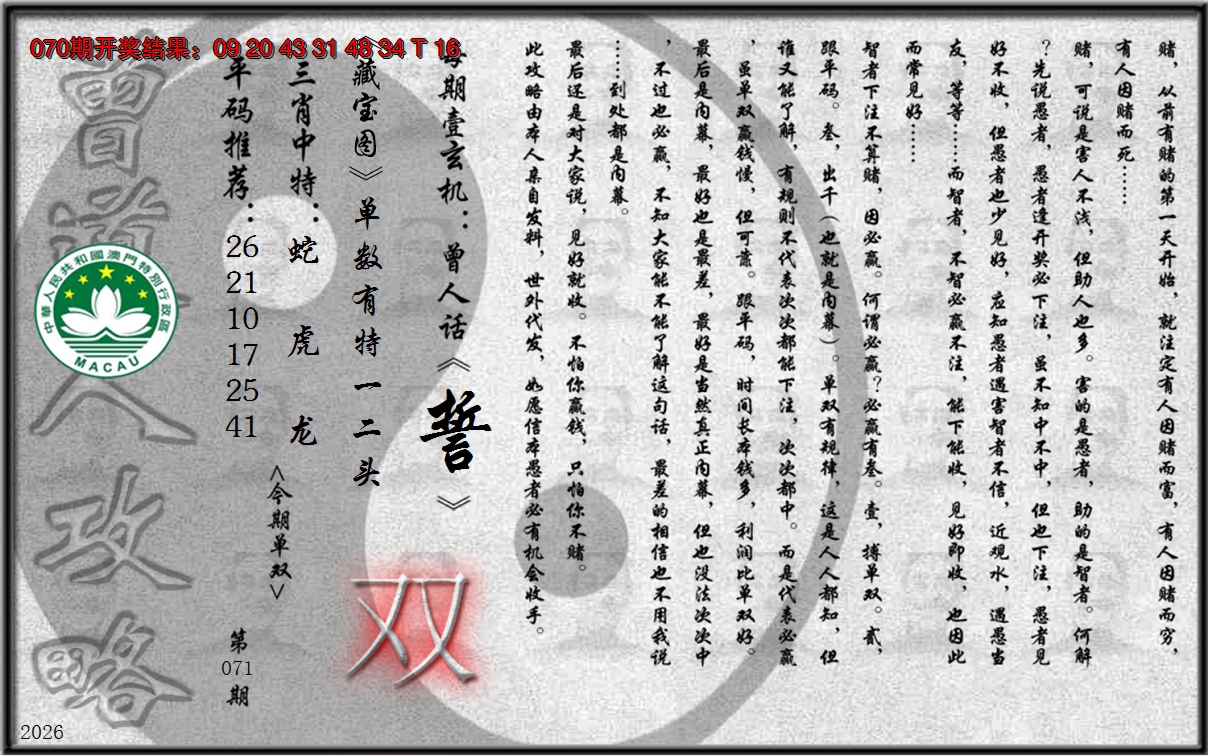 070期开奖结果：09 20 43 31 48 34 T 16
赌，从前有赌的第一天开始，就注定有人因赌而富，有人因赌而穷，
有人因赌而死……
赌，可说是害人不浅，但助人也多。害的是愚者，助的是智者。何解
？先说愚者，愚者逢开奖必下注，虽不知中不中，但也下注，愚者见
好不收，但愚者也少见好，应知愚者遇害智者不信，近观水，遇愚当
友，等等……而智者，不智必赢不注，能下能收，见好即收，也因此
而常见好……
智者下注不算赌，因必赢。何谓必赢？必赢有叁。壹，搏单双。贰，
跟平码。叁，出千（也就是内幕）。单双有规律，这是人人都知，但
谁又能了解，有规则不代表次次都能下注，次次都中。而是代表必赢
，虽单双赢钱慢，但可靠。跟平码，时间长本钱多，利润比单双好。
最后是内幕，最好也是最差，最好是当然真正内幕，但也没法次次中
，不过也必赢，不知大家能不能了解这句话，最差的相信也不用我说
……到处都是内幕。
最后还是对大家说，见好就收。不怕你赢钱，只怕你不赌。
此攻略由本人亲自发料，世外代发，如愿信本愚者必有机会收手。
每期壹玄机：曾人话《誓》
《藏宝图》单数有特一二头
双
三肖中特：蛇 虎 龙
<今期单双>
平码推荐：26 21 10 17 25 41
第071期
曾道人攻略
中華人民共和國澳門特別行政區
MACAU
2026